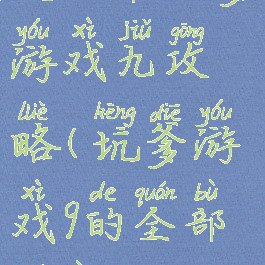 yóu xì jiǔ gōng
游戏九攻
lüè kēng diē yóu
略(坑爹游
xì de quán bù
戏9的全部